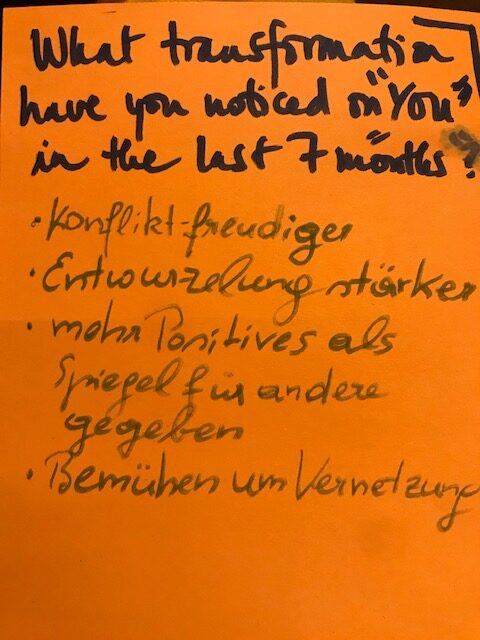 What transformation
have you noticed on "You"
in the last 7 months?
· Konflikt-freudiger
· Entwurzelung stärker
· mehr Positives als
Spiegel für andere
gegeben
· Bemühen um Vernetzung